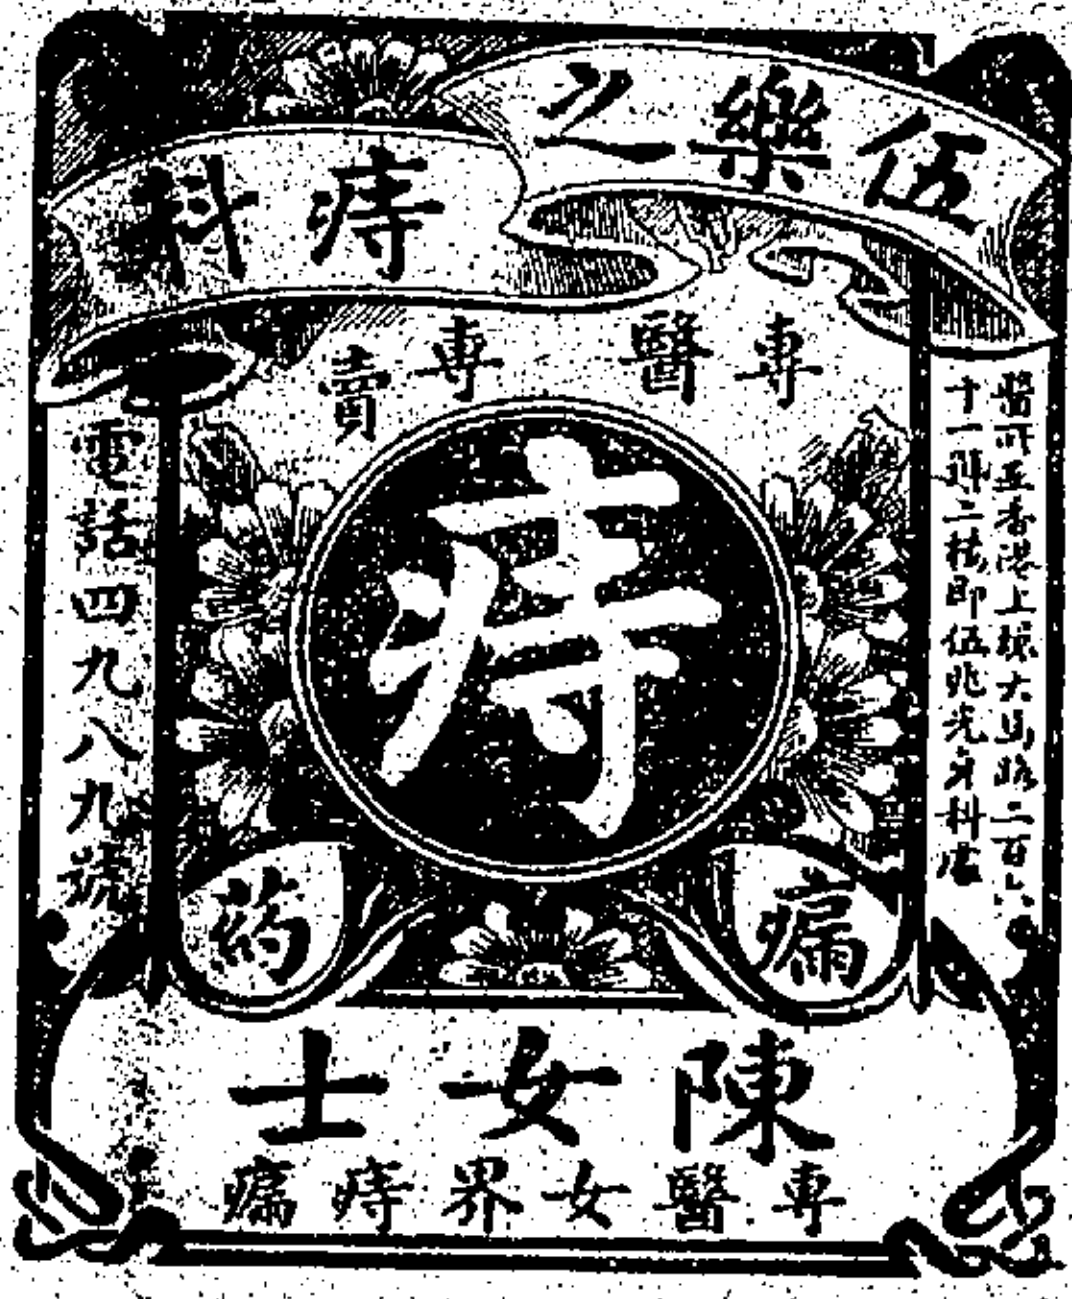 伍樂之
痔科
專醫
專賣
痔
瘺
药
醫所在香港上環大馬路二百六
十一號二樓即伍兆光牙科處
電話四九八九號
陳女士
專醫女界痔瘺